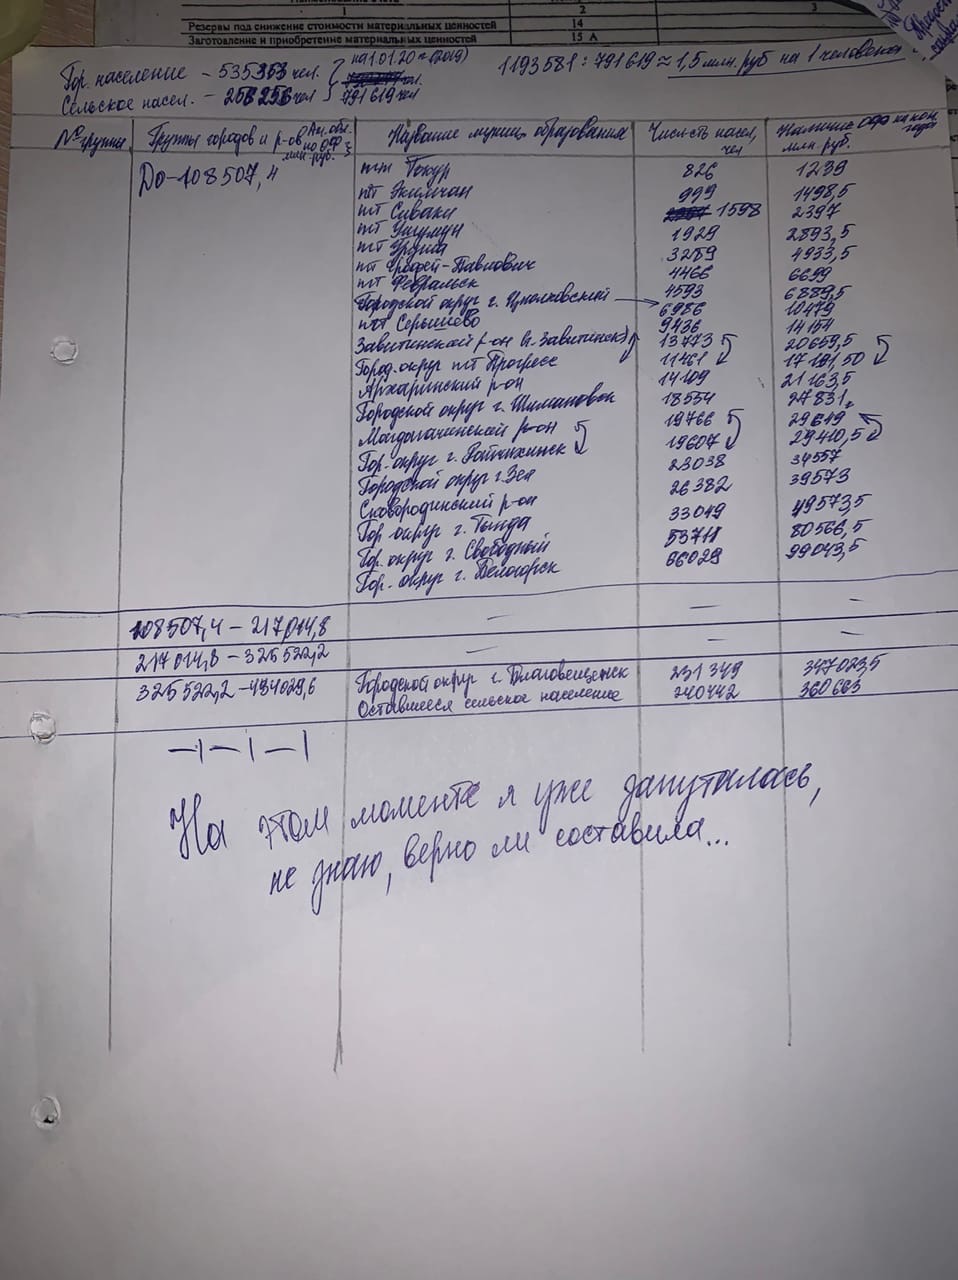 1 2 3
Резервы под снижение стоимости материальных ценностей 14
Заготовление и приобретение материальных ценностей 15 А
Гор. население – 535363 чел. на 1.01.20 г (2019) 1193581 : 791619 ≈ 1,5 млн. руб на 1 человека
Сельское насел. – 256256 чел 791619 чел
№ группы Группы городов и р-ов по ОФ млн. руб. Название муниц. образования Числ-ть насел, чел Наличие ОФ на кон. года млн. руб.
До – 108507,4 пгт Токур 826 1239
пгт Экимчан 999 1498,5
пгт Сиваки 1598 2397
пгт Ушумун 1929 2893,5
пгт 3289 4933,5
пгт Ерофей-Павлович 4466 6699
пгт Февральск 4593 6889,5
Городской округ г. Циолковский 6986 10479
пгт Серышево 9436 14154
Завитинский р-он (г. Завитинск) 13773 20659,5
Город. округ пгт Прогресс 11461 17191,50
Архаринский р-он 14109 21163,5
Городской округ г. Шимановск 18554 27831
Магдагачинский р-он 19766 29649
Гор. округ г. Райчихинск 19607 29410,5
Городской округ г. Зея 23038 34557
Сковородинский р-он 26382 39573
Гор. округ г. Тында 33049 49573,5
Гор. округ г. Свободный 53711 80566,5
Гор. округ г. Белогорск 66029 99043,5
108507,4 – 217014,8 — — —
217014,8 – 325522,2 — — —
325522,2 – 434029,6 Городской округ г. Благовещенск 231349 347023,5
Оставшееся сельское население 240442 360663
—|—|—|
На этом моменте я уже запуталась,
не знаю, верно ли составила...